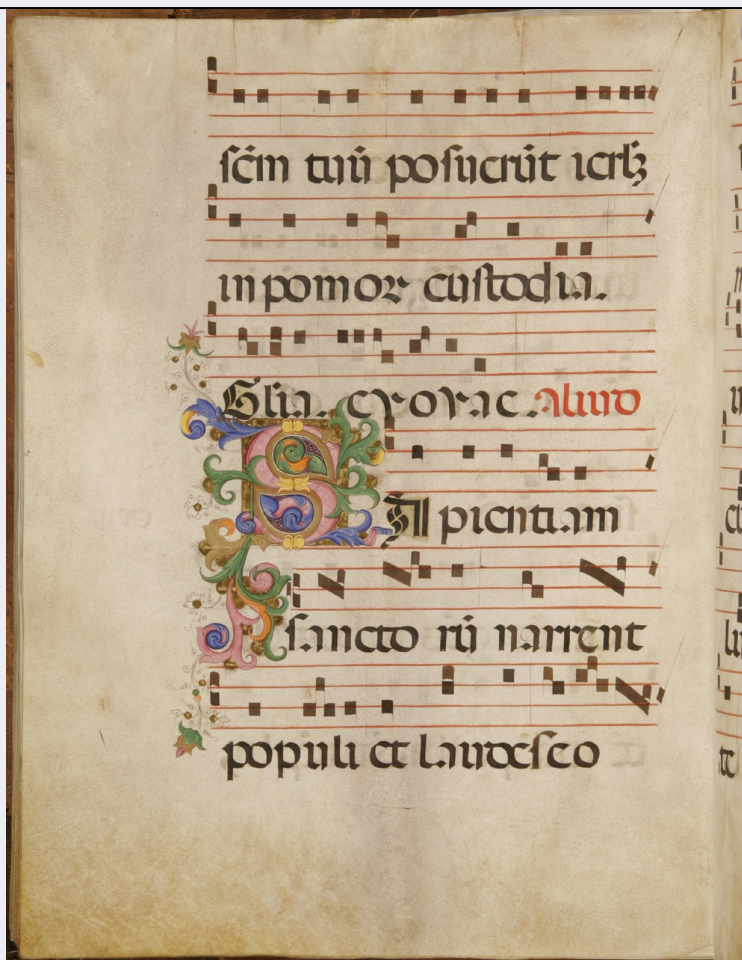 sc̄m tuū posuerūt ierlꝫ
in pomoꝝ custodia.
Glia. evovae. Aliud
SApientiam
sanctorū narrent
populi et laudes eo